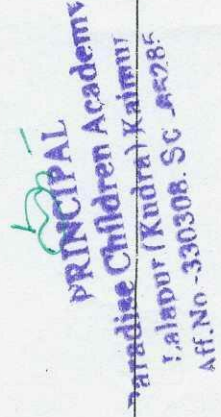 PRINCIPAL
Paradise Children Academy
Lalapur (Kudra) Kaimur
Aff.No.-330308. SC